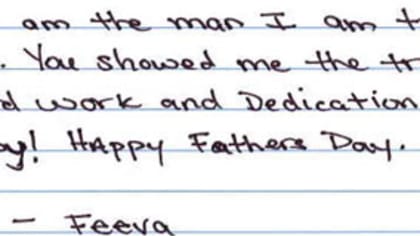 am the man I am t
. You showed me the tr
d work and Dedication
ay! Happy Fathers Day.
- Feeva